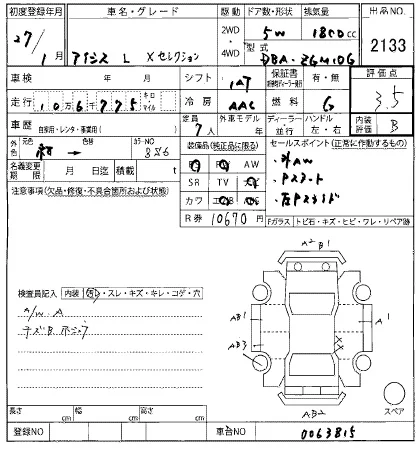 初度登録年月 車名・グレード 駆動 ドア数・形状 排気量 出品NO.
27/1月 アイシス L Xセレクション 2WD・4WD 5W 1800cc 2133
型式 DBA-ZGM10G
車検 年 月 シフト IAT 保証書 有・無 評価点
走行 10万6千775 キロ マイル 冷房 AAC 燃料 G 3.5
車歴 自家用・レンタ・事業用( ) 定員 7人 外車モデル 年 ディーラー・並行 ハンドル 左・右 内装評価 B
外色 元色 紺 → 色替 カラーNO 8S6
名義変更期限 月 日迄 積載 t
装備品(純正品に限る) セールスポイント(正常に作動するもの)
PS PW AW
SR TV ナビ
カワ エアB
R券 10670円
・外AW
・Pスタート
・左Pスライド
注意事項(欠品・修復・不具合箇所および状態)
Fガラス トビ石・キズ・ヒビ・ワレ・リペア跡
検査員記入 内装 ・スレ・キズ・キレ・コゲ・穴
A2 B1
AB1
A1
AB3
AB2
スペア
長さ cm 幅 cm 高さ cm
登録NO 車台NO 0063815